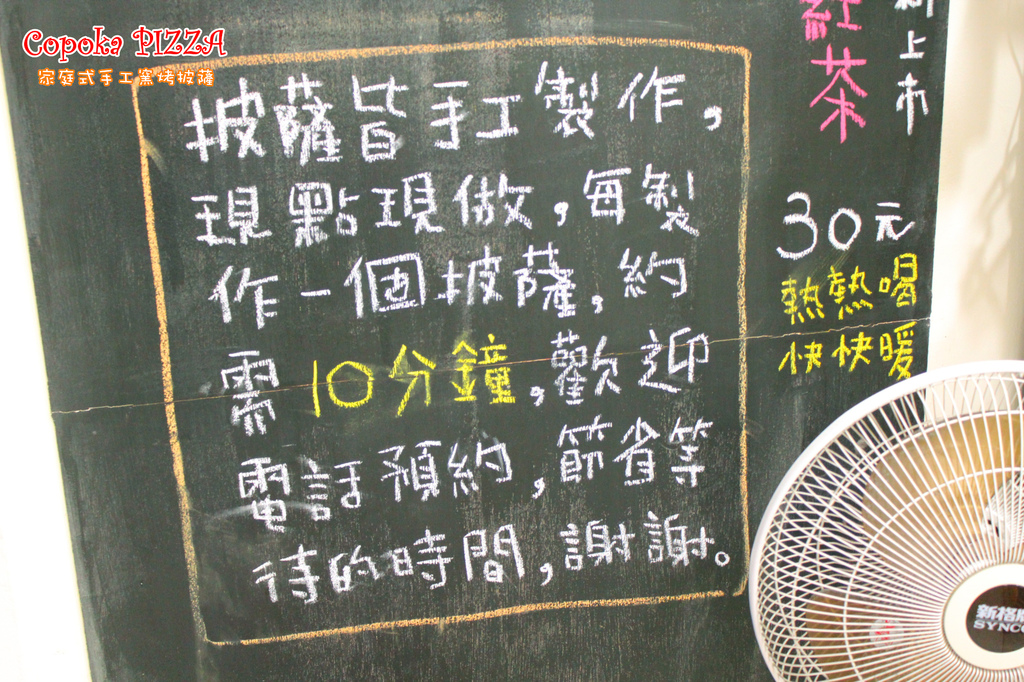 Copoka PIZZA
家庭式手工窯烤披薩
披薩皆手工製作,
現點現做,每製
作一個披薩,約
需10分鐘,歡迎
電話預約,節省等
待的時間,謝謝。
上市
紅茶
30元
熱熱喝
快快暖
新格牌
SYNCO